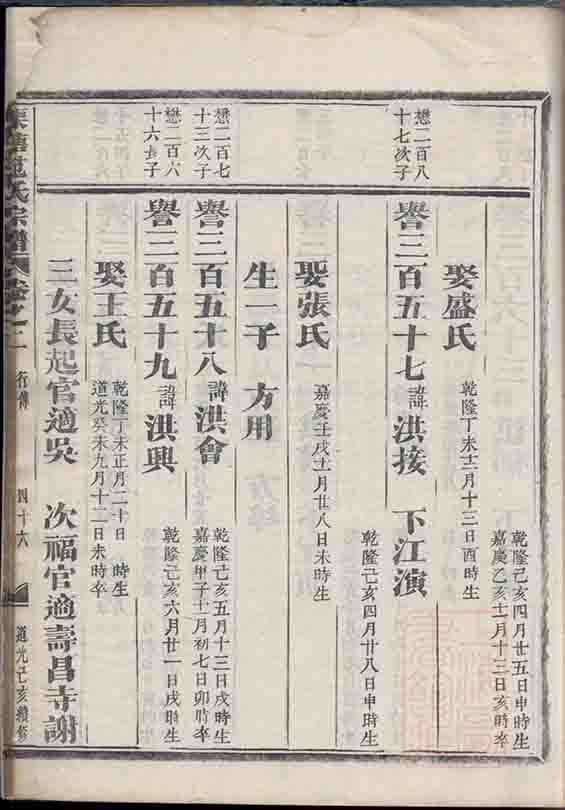 乾隆己亥四月廿五日申時生
嘉慶乙亥十一月十三日亥時卒
娶盛氏
乾隆丁未十二月十三日酉時生
懋二百八
十七次子
譽三百五十七
諱
洪接
下江演
乾隆己亥四月廿八日申時生
娶張氏
嘉慶壬戌十二月廿八日未時生
生一子
方用
懋二百七
十三次子
譽三百五十八
諱
洪會
乾隆己亥五月十三日戌時生
嘉慶甲子十一月初七日卯時卒
懋二百六
十六長子
譽三百五十九
諱
洪興
乾隆己亥六月廿一日戌時生
娶王氏
乾隆丁未正月二十日 時生
道光癸未九月十二日未時卒
三女長起官適吳 次福官適壽昌寺謝
范氏宗譜
卷之二
行傳
四十六
道光己亥續修